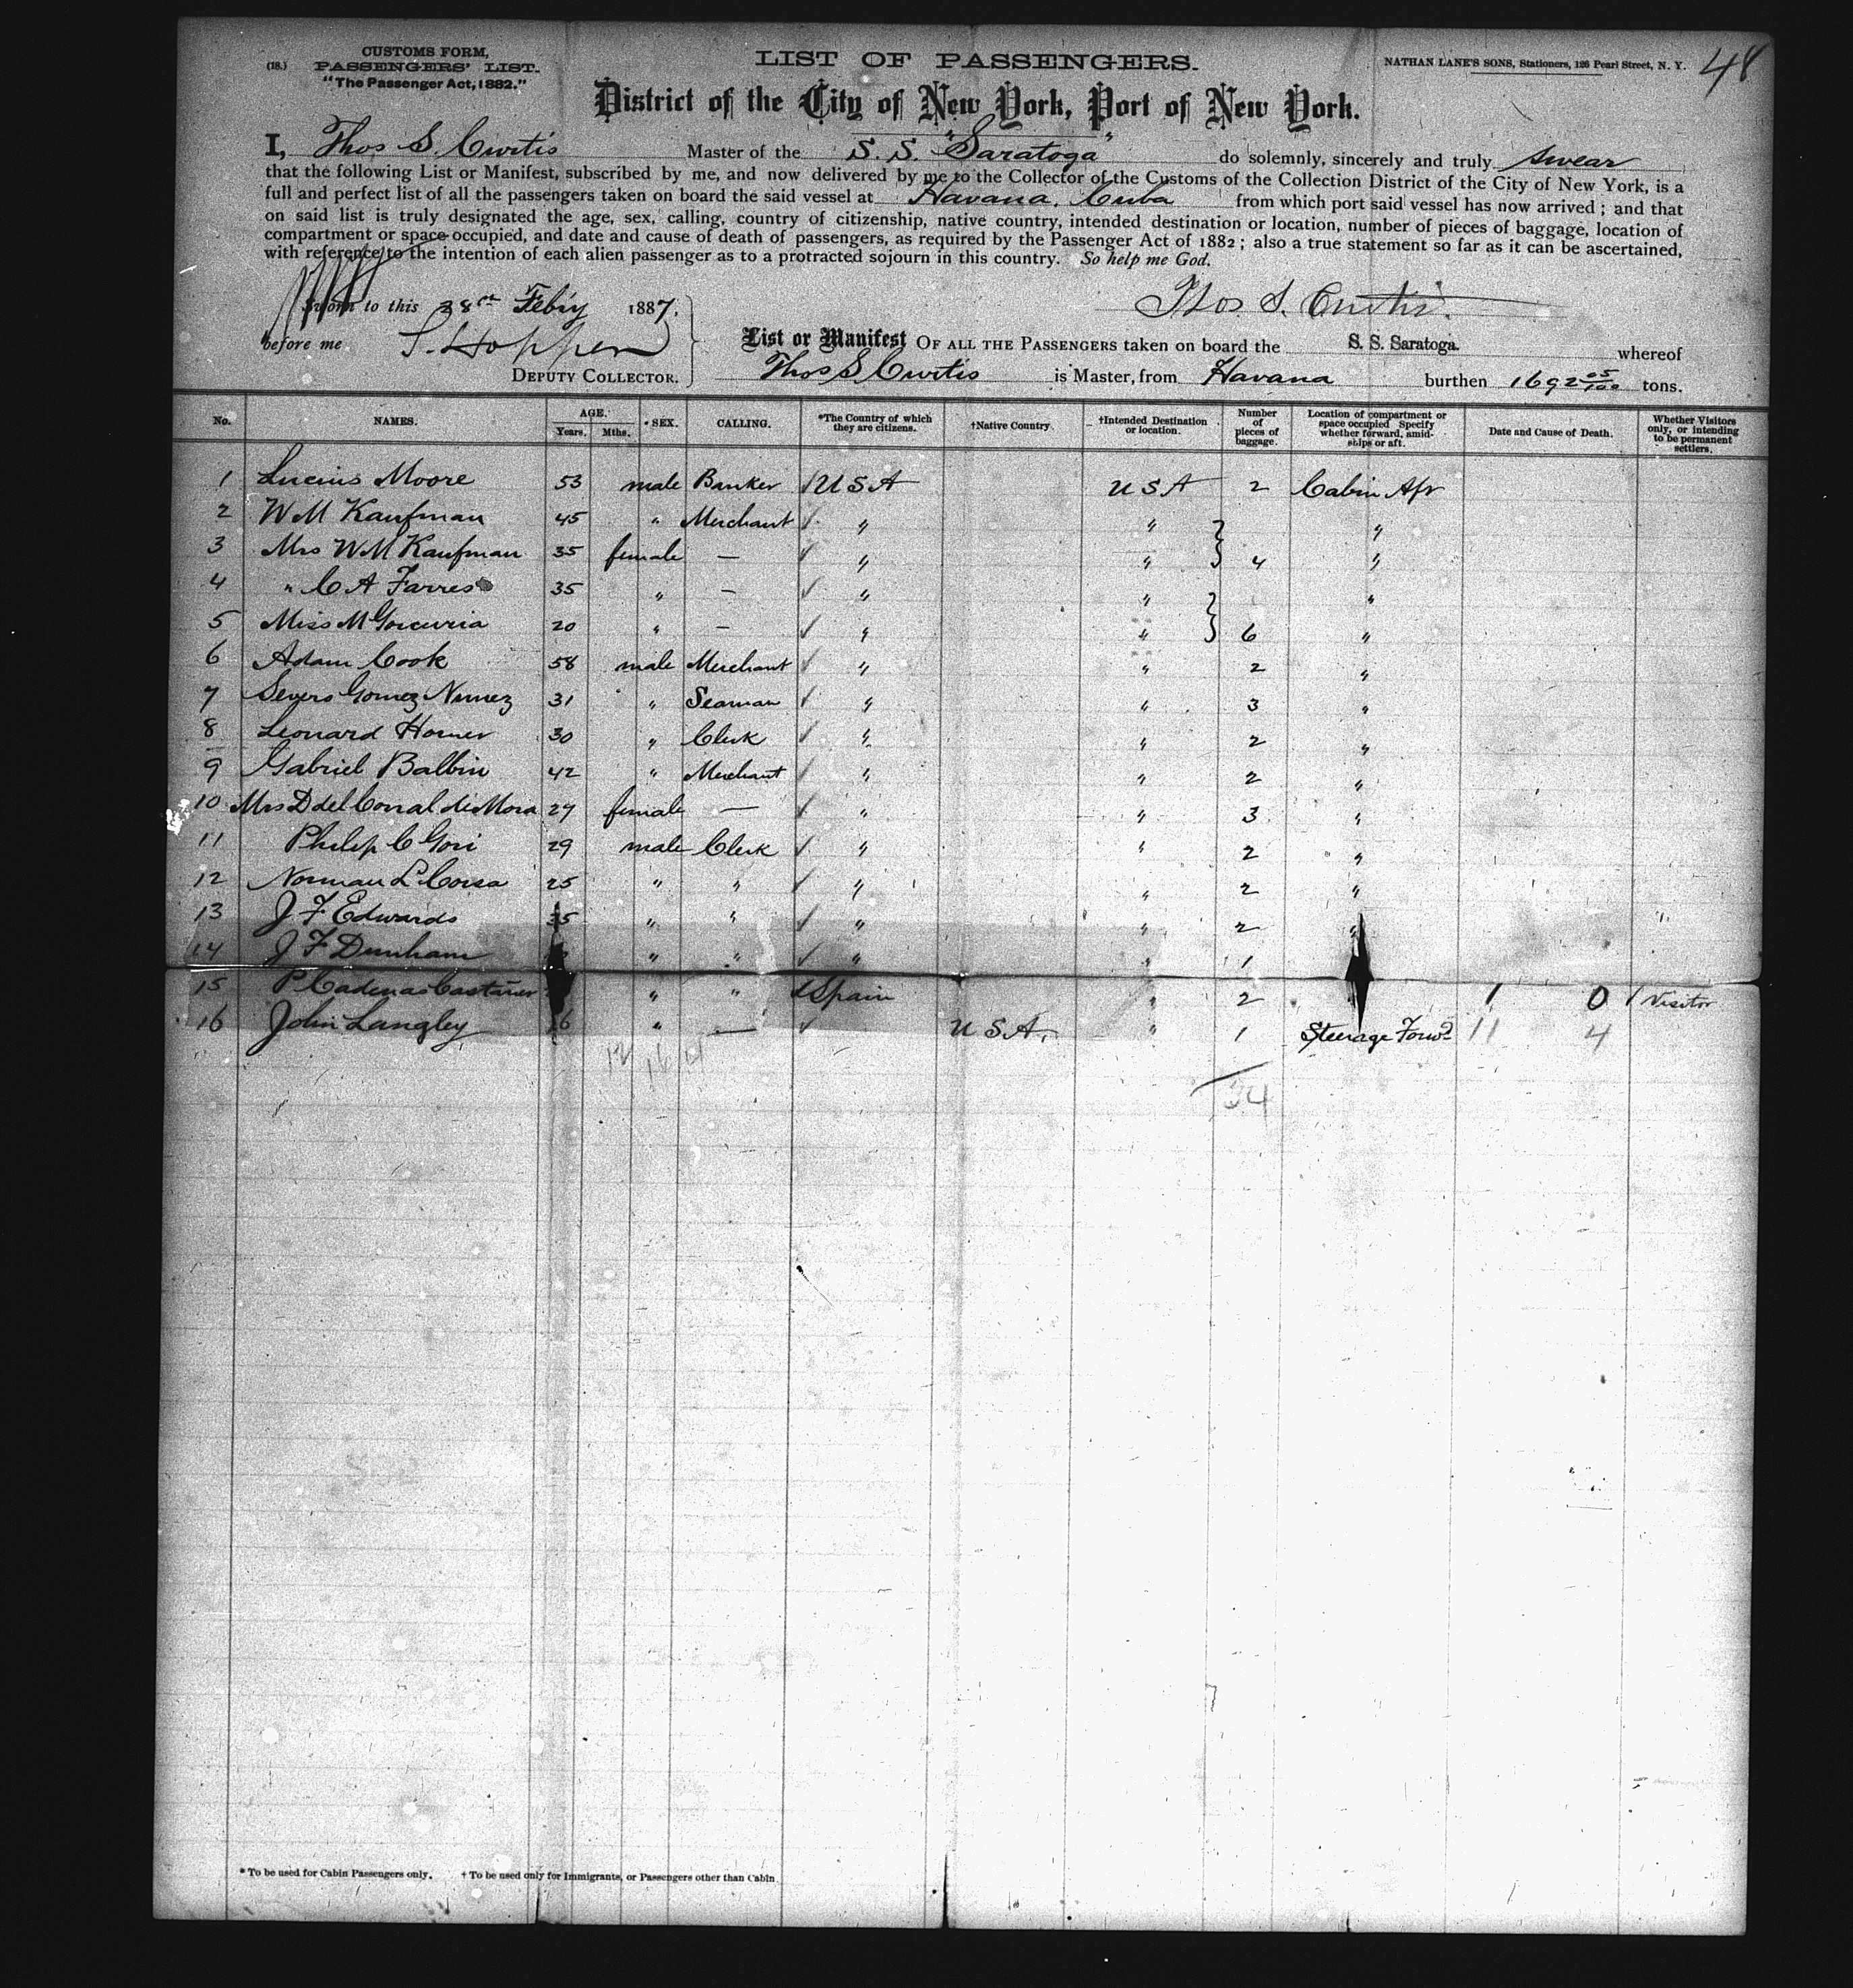 CUSTOMS FORM,
(18.) PASSENGERS' LIST.
"The Passenger Act, 1882."
LIST OF PASSENGERS.
NATHAN LANE'S SONS, Stationers, 126 Pearl Street, N. Y.
48
District of the City of New York, Port of New York.
I, Thos S. Curtis Master of the S. S. "Saratoga" do solemnly, sincerely and truly swear
that the following List or Manifest, subscribed by me, and now delivered by me to the Collector of the Customs of the Collection District of the City of New York, is a
full and perfect list of all the passengers taken on board the said vessel at Havana, Cuba from which port said vessel has now arrived; and that
on said list is truly designated the age, sex, calling, country of citizenship, native country, intended destination or location, number of pieces of baggage, location of
compartment or space occupied, and date and cause of death of passengers, as required by the Passenger Act of 1882; also a true statement so far as it can be ascertained,
with reference to the intention of each alien passenger as to a protracted sojourn in this country. So help me God.
Sworn to this 28th Feb'y 1887. Thos. S. Curtis.
before me S. Hoppen
DEPUTY COLLECTOR.
List or Manifest OF ALL THE PASSENGERS taken on board the S. S. Saratoga. whereof
Thos S Curtis is Master, from Havana burthen 1692 05/100 tons.
No. NAMES. AGE. Years. Mths. SEX. CALLING. *The Country of which they are citizens. †Native Country. †Intended Destination or location. Number of pieces of baggage. Location of compartment or space occupied Specify whether forward, amidships or aft. Date and Cause of Death. Whether Visitors only, or intending to be permanent settlers.
1 Lucius Moore 53 male Banker USA USA 2 Cabin Aft
2 W M Kaufman 45 " Merchant " " "
3 Mrs W M Kaufman 35 female — " " 4 "
4 " C A Farres 35 " — " " "
5 Miss M Goicuria 20 " — " " 6 "
6 Adam Cook 58 male Merchant " " 2 "
7 Severo Gomez Nunez 31 " Seaman " " 3 "
8 Leonard Homer 30 " Clerk " " 2 "
9 Gabriel Balbin 42 " Merchant " " 2 "
10 Mrs D del Corral de Mora 27 female — " " 3 "
11 Philip C Gori 29 male Clerk " " 2 "
12 Norman L Corsa 25 " " " " 2 "
13 J F Edwards 35 " " " " 2 "
14 J F Dunham " " " " 1
15 P Cadenas Castañer " " Spain " 2 " 1 0 1 Visitor
16 John Langley " — USA. " 1 Steerage Forwd 11 4
12 16 4
34
* To be used for Cabin Passengers only. † To be used only for Immigrants, or Passengers other than Cabin.